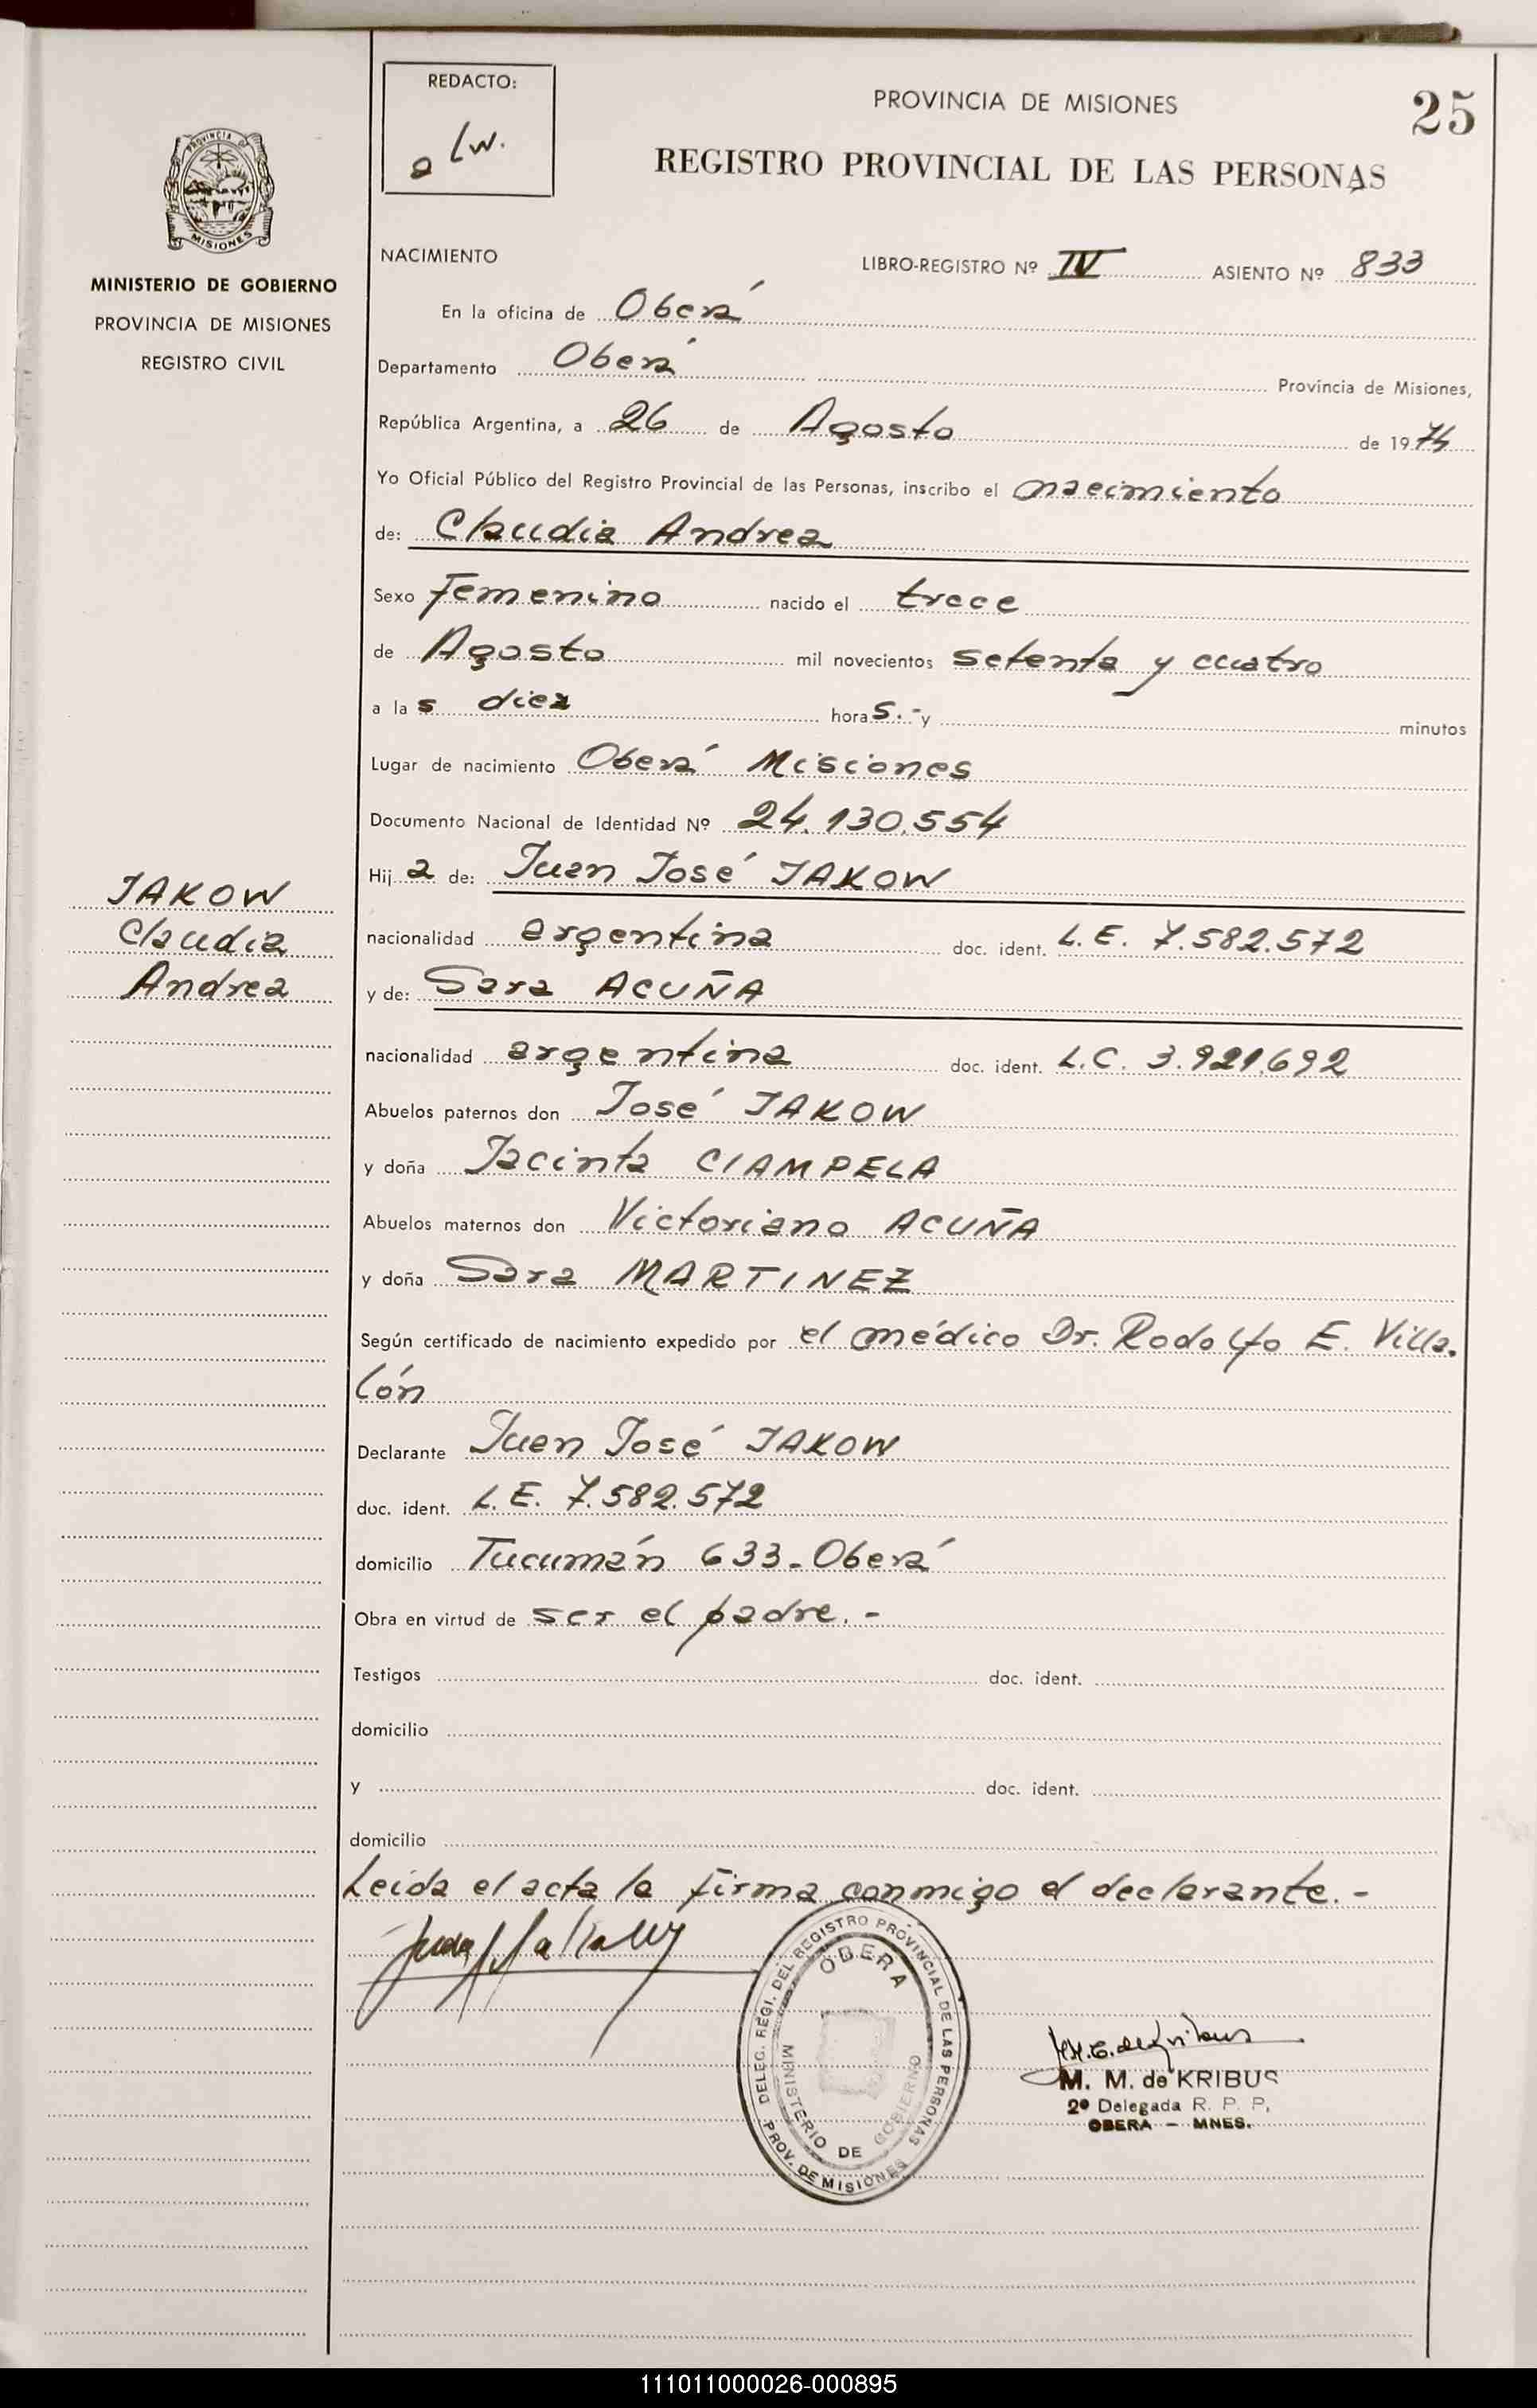 REDACTO:
PROVINCIA DE MISIONES
25
REGISTRO PROVINCIAL DE LAS PERSONAS
PROVINCIA DE
MISIONES
MINISTERIO DE GOBIERNO
PROVINCIA DE MISIONES
REGISTRO CIVIL
NACIMIENTO LIBRO-REGISTRO Nº IV ASIENTO Nº 833
En la oficina de Oberá
Departamento Oberá Provincia de Misiones,
República Argentina, a 26 de Agosto de 1974
Yo Oficial Público del Registro Provincial de las Personas, inscribo el nacimiento
de: Claudia Andrea
Sexo Femenino nacido el trece
de Agosto mil novecientos setenta y cuatro
a las diez horas.- y minutos
Lugar de nacimiento Oberá Misiones
Documento Nacional de Identidad Nº 24.130.554
Hija de: Juan José JAKOW
nacionalidad argentina doc. ident. L.E. 7.582.572
y de: Sara ACUÑA
nacionalidad argentina doc. ident. L.C. 3.921.692
Abuelos paternos don José JAKOW
y doña Jacinta CIAMPELA
Abuelos maternos don Victoriano ACUÑA
y doña Sara MARTINEZ
Según certificado de nacimiento expedido por el médico Dr. Rodolfo E. Villa-
lón
Declarante Juan José JAKOW
doc. ident. L.E. 7.582.572
domicilio Tucumán 633-Oberá
Obra en virtud de ser el padre.-
Testigos doc. ident.
domicilio
y doc. ident.
domicilio
Leída el acta la firma conmigo el declarante.-
JAKOW
Claudia
Andrea
DELEG. REGI. DEL REGISTRO PROVINCIAL DE LAS PERSONAS
OBERA
MINISTERIO DE GOBIERNO
PROV. DE MISIONES
M. M. de KRIBUS
2º Delegada R. P. P.
OBERA - MNES.
111011000026-000895